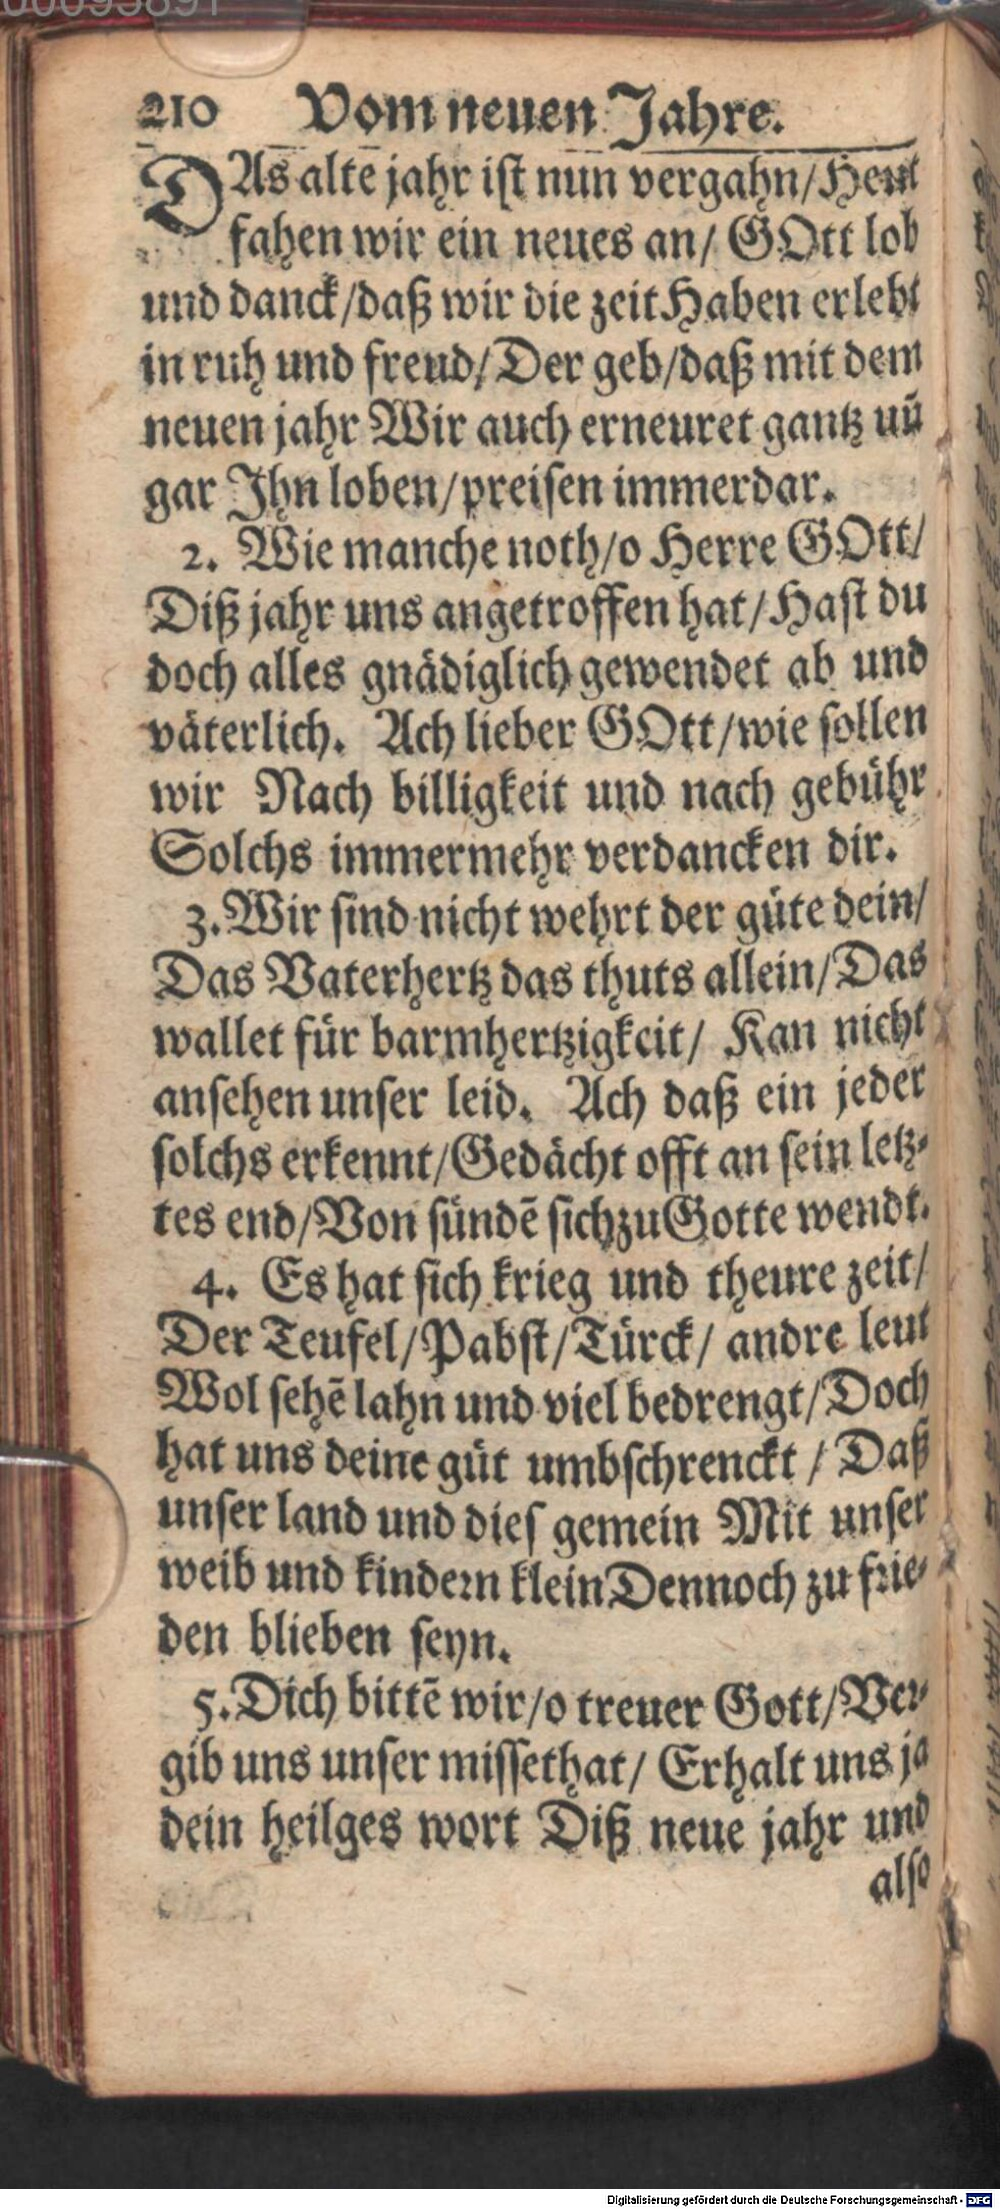 210 Vom neuen Jahre.
DAs alte jahr ist nun vergahn/Heut
fahen wir ein neues an/ GOtt lob
und danck/daß wir die zeit Haben erlebt
in ruh und freud/Der geb/daß mit dem
neuen jahr Wir auch erneuret gantz uñ
gar Jhn loben/preisen immerdar.
2. Wie manche noth/o Herre GOtt/
Diß jahr uns angetroffen hat/Hast du
doch alles gnädiglich gewendet ab und
väterlich. Ach lieber GOtt/wie sollen
wir Nach billigkeit und nach gebühr
Solchs immermehr verdancken dir.
3. Wir sind nicht wehrt der güte dein/
Das Vaterhertz das thuts allein/Das
wallet für barmhertzigkeit/ Kan nicht
ansehen unser leid. Ach daß ein jeder
solchs erkennt/Gedächt offt an sein letz-
tes end/Von sündē sich zu Gotte wendt.
4. Es hat sich krieg und theure zeit/
Der Teufel/Pabst/Türck/ andre leut
Wol sehē lahn und viel bedrengt/Doch
hat uns deine güt umbschrenckt / Daß
unser land und dies gemein Mit unser
weib und kindern klein Dennoch zu frie-
den blieben seyn.
5. Dich bittē wir/o treuer Gott/Ver-
gib uns unser missethat/ Erhalt uns ja
dein heilges wort Diß neue jahr und
also
Digitalisierung gefördert durch die Deutsche Forschungsgemeinschaft - DFG